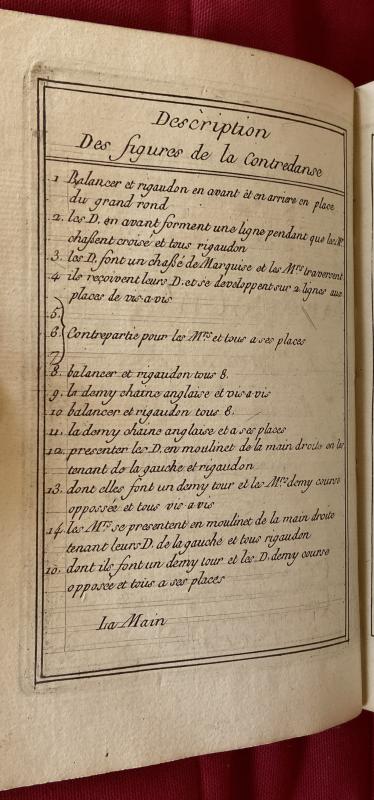 Description
Des figures de la Contredanse
1 Balancer et rigaudon en avant et en arriere en place
du grand rond
2. les D. en avant forment une ligne pendant que les Mrs
chaßent croisé et tous rigaudon
3. les D. font un chaßé de Marquise et les Mrs traversent
4 ils reçoivent leurs D. et se developpent sur 2 lignes aux
places de vis a vis
5.
6. Contrepartie pour les Mrs et tous a ses places
7
8. balancer et rigaudon tous 8.
9. la demy chaine anglaise et vis a vis
10 balancer et rigaudon tous 8.
11. la demy chaine anglaise et a ses places
12. presenter les D. en moulinet de la main droite en les
tenant de la gauche et rigaudon
13. dont elles font un demy tour et les Mrs demy course
oppossée et tous vis a vis
14. les Mrs se presentent en moulinet de la main droite
tenant leurs D. de la gauche et tous rigaudon
15. dont ils font un demy tour et les D. demy course
opposée et tous a ses places
La Main